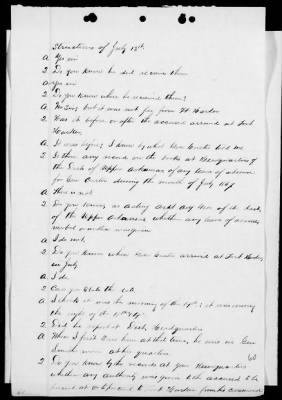 structions of July 13th.
A Yes sir
2 Do you know he did receive them
A Yes sir
2 Do you know where he received them?
A No Sir, but it was not far from Ft Harker
2 Was it before or after the accused arrived at Fort
Harker
A It was before; I know by what Gen Custer told me
2 Is there any record on the books at Headquarters of the
Dist of Upper Arkansas of any leave of absence
for Gen Custer during the month of July 1867
A There is not
2 Do you know, as acting asst adj Gen of the Dist,
of the Upper Arkansas whether any leave of absence
verbal or written was given
A I do not,
2 Do you know when Gen Custer arrived at Fort Harker,
in July
A I do
2 Can you state the
A I think it was the morning of the 19th; it was during
the night of the 18th & 19th
2 Did he report at Dist. Headquarters
A When I first saw him at that time, he was in Gen
Smith's room at his quarters
60
2 Do you know by the records at your Headquarters
whether any authority was given the accused to be
absent
Harker from his command